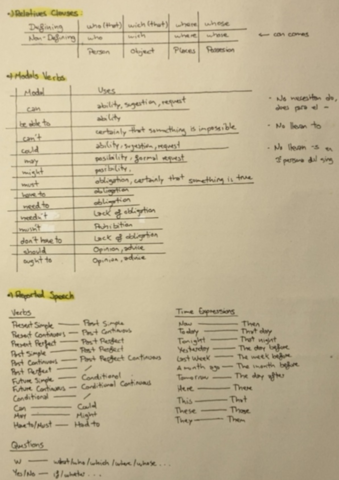 Relatives Clauses:
Defining who(that) wich(that) where whose
Non-Defining who wich where whose ← con comas
Person Object Places Possesion
Modals Verbs
Modal Uses
can ability, sugestion, request
be able to ability
can't certainly that something is impossible
could ability, sugestion, request
may posibility, formal request
might posibility.
must obligation, certainly that something is true
have to obligation
need to obligation
needn't Lack of obligation
mustn't Prohibition
don't have to Lack of obligation
should Opinion, advice
ought to Opinion, advice
- No necesitan do,
does para el -
- No llevan to
- No llevan -s en
3ª persona del sing
Reported Speech
Verbs
Present Simple — Past Simple
Present Continuous — Past Continuous
Present Perfect — Past Perfect
Past Simple — Past Perfect
Past Continuous — Past Perfect Continuous
Past Perfect — /
Future Simple — Conditional
Future Continuous — Conditional Continuous
Conditional — /
Can — Could
May — Might
Have to/Must — Had to
Time Expressions
Now — Then
Today — That day
Tonight — That night
Yesterday — The day before
Last Week — The week before
A month ago — The month before
Tomorrow — The day after
Here — There
This — That
These — Those
They — Then
Questions
W — what/who/which/when/whose...
Yes/No — if/wheter...